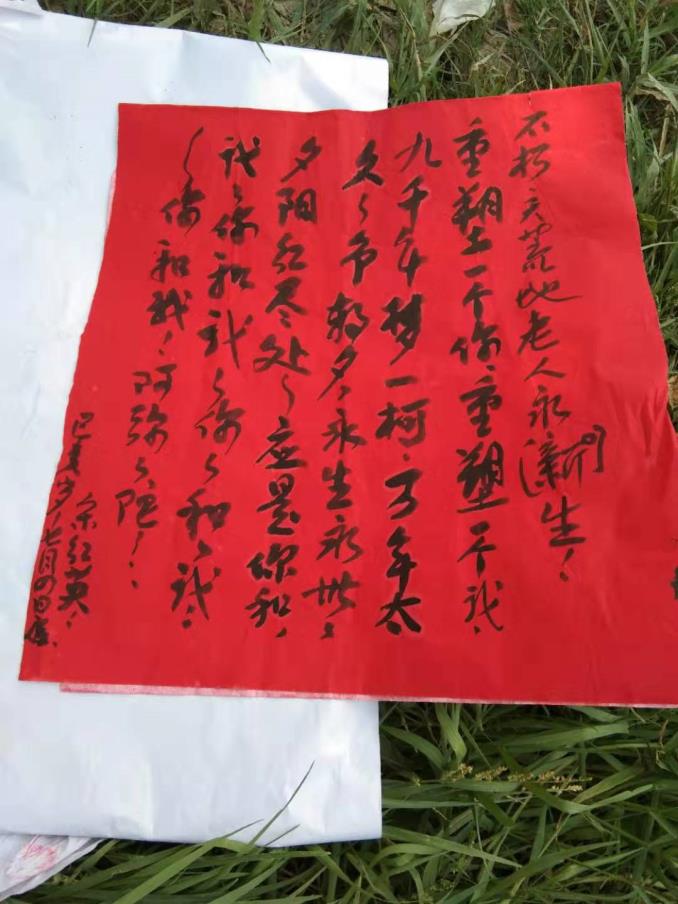 不朽天荒地老人永新生!
重塑一个你、重塑一个我、
九千年梦一柯、万年太
久、争朝夕、永生永世、
夕阳红尽处、应是你和、
我、你和我、你、和、我、
、你和我!阿弥、陀!
余红英!
己亥岁七月四日